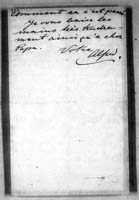 Comment en s'est passé
Je vous baise les
mains très tendre-
ment ainsi qu'a cher
Papa. Votre
Alfred